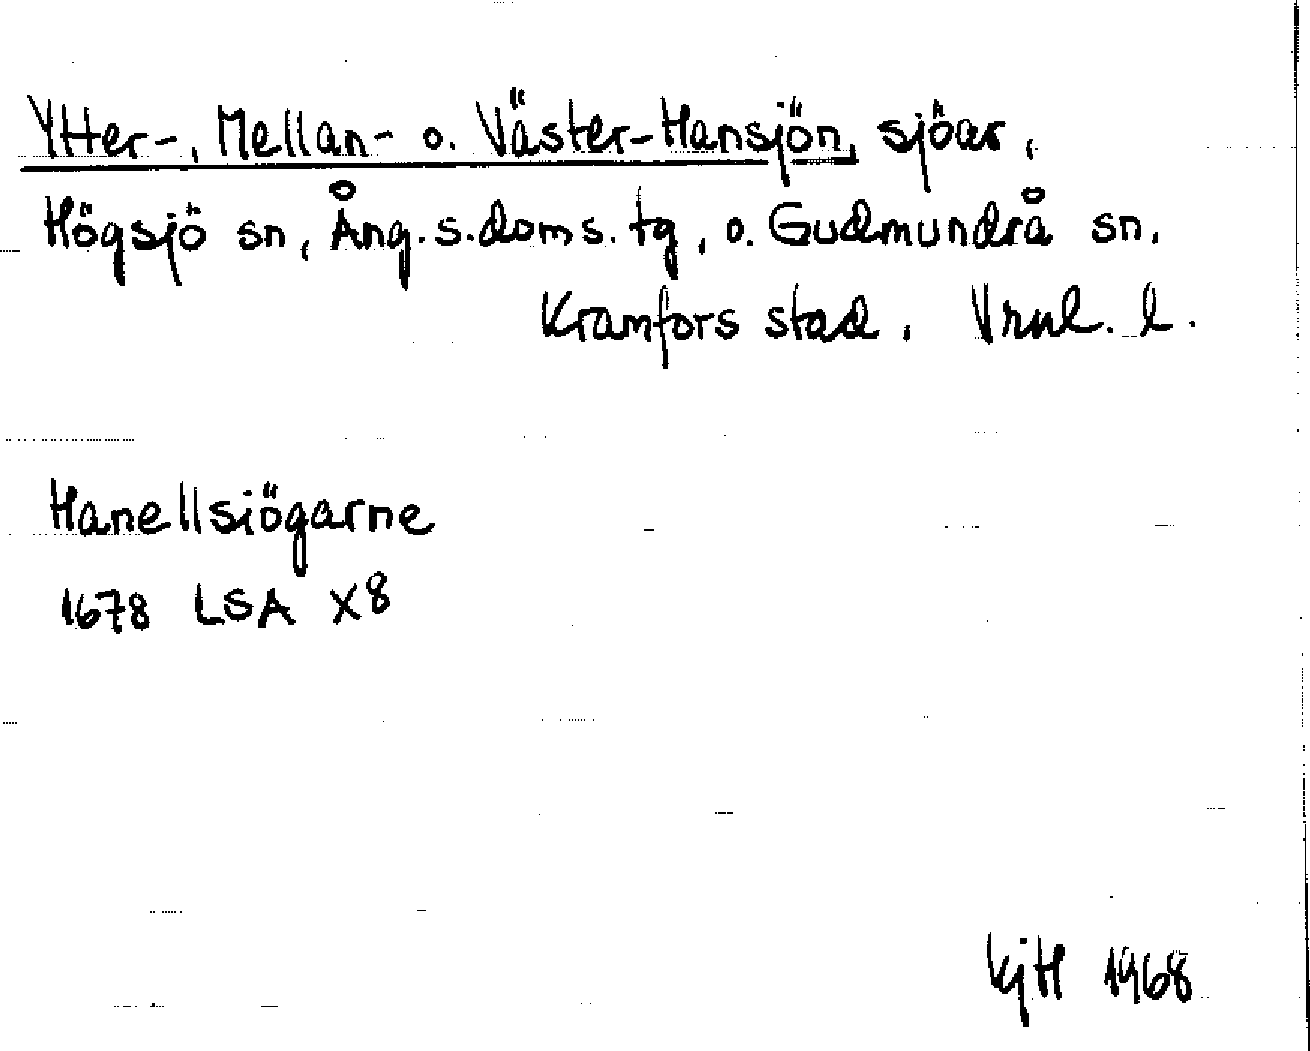 Ytter-, Mellan- o. Väster-Hansjön, sjöar,
Högsjö sn, Ång. s. doms. tg, o. Gudmundrå sn,
Kramfors stad, Vrnl. l.
Hanellsiögarne
1678 LSA X8
KjH 1968